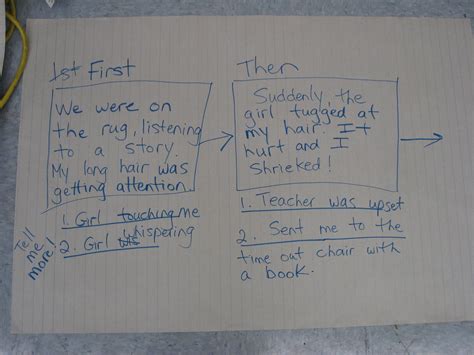 1st First
We were on
the rug, listening
to a story.
My long hair was
getting attention.
1. Girl touching me
2. Girl was whispering
Tell
me
more!
Then
Suddenly, the
girl tugged at
my hair. It
hurt and I
Shrieked!
1. Teacher was upset
2. Sent me to the
time out chair with
a book.